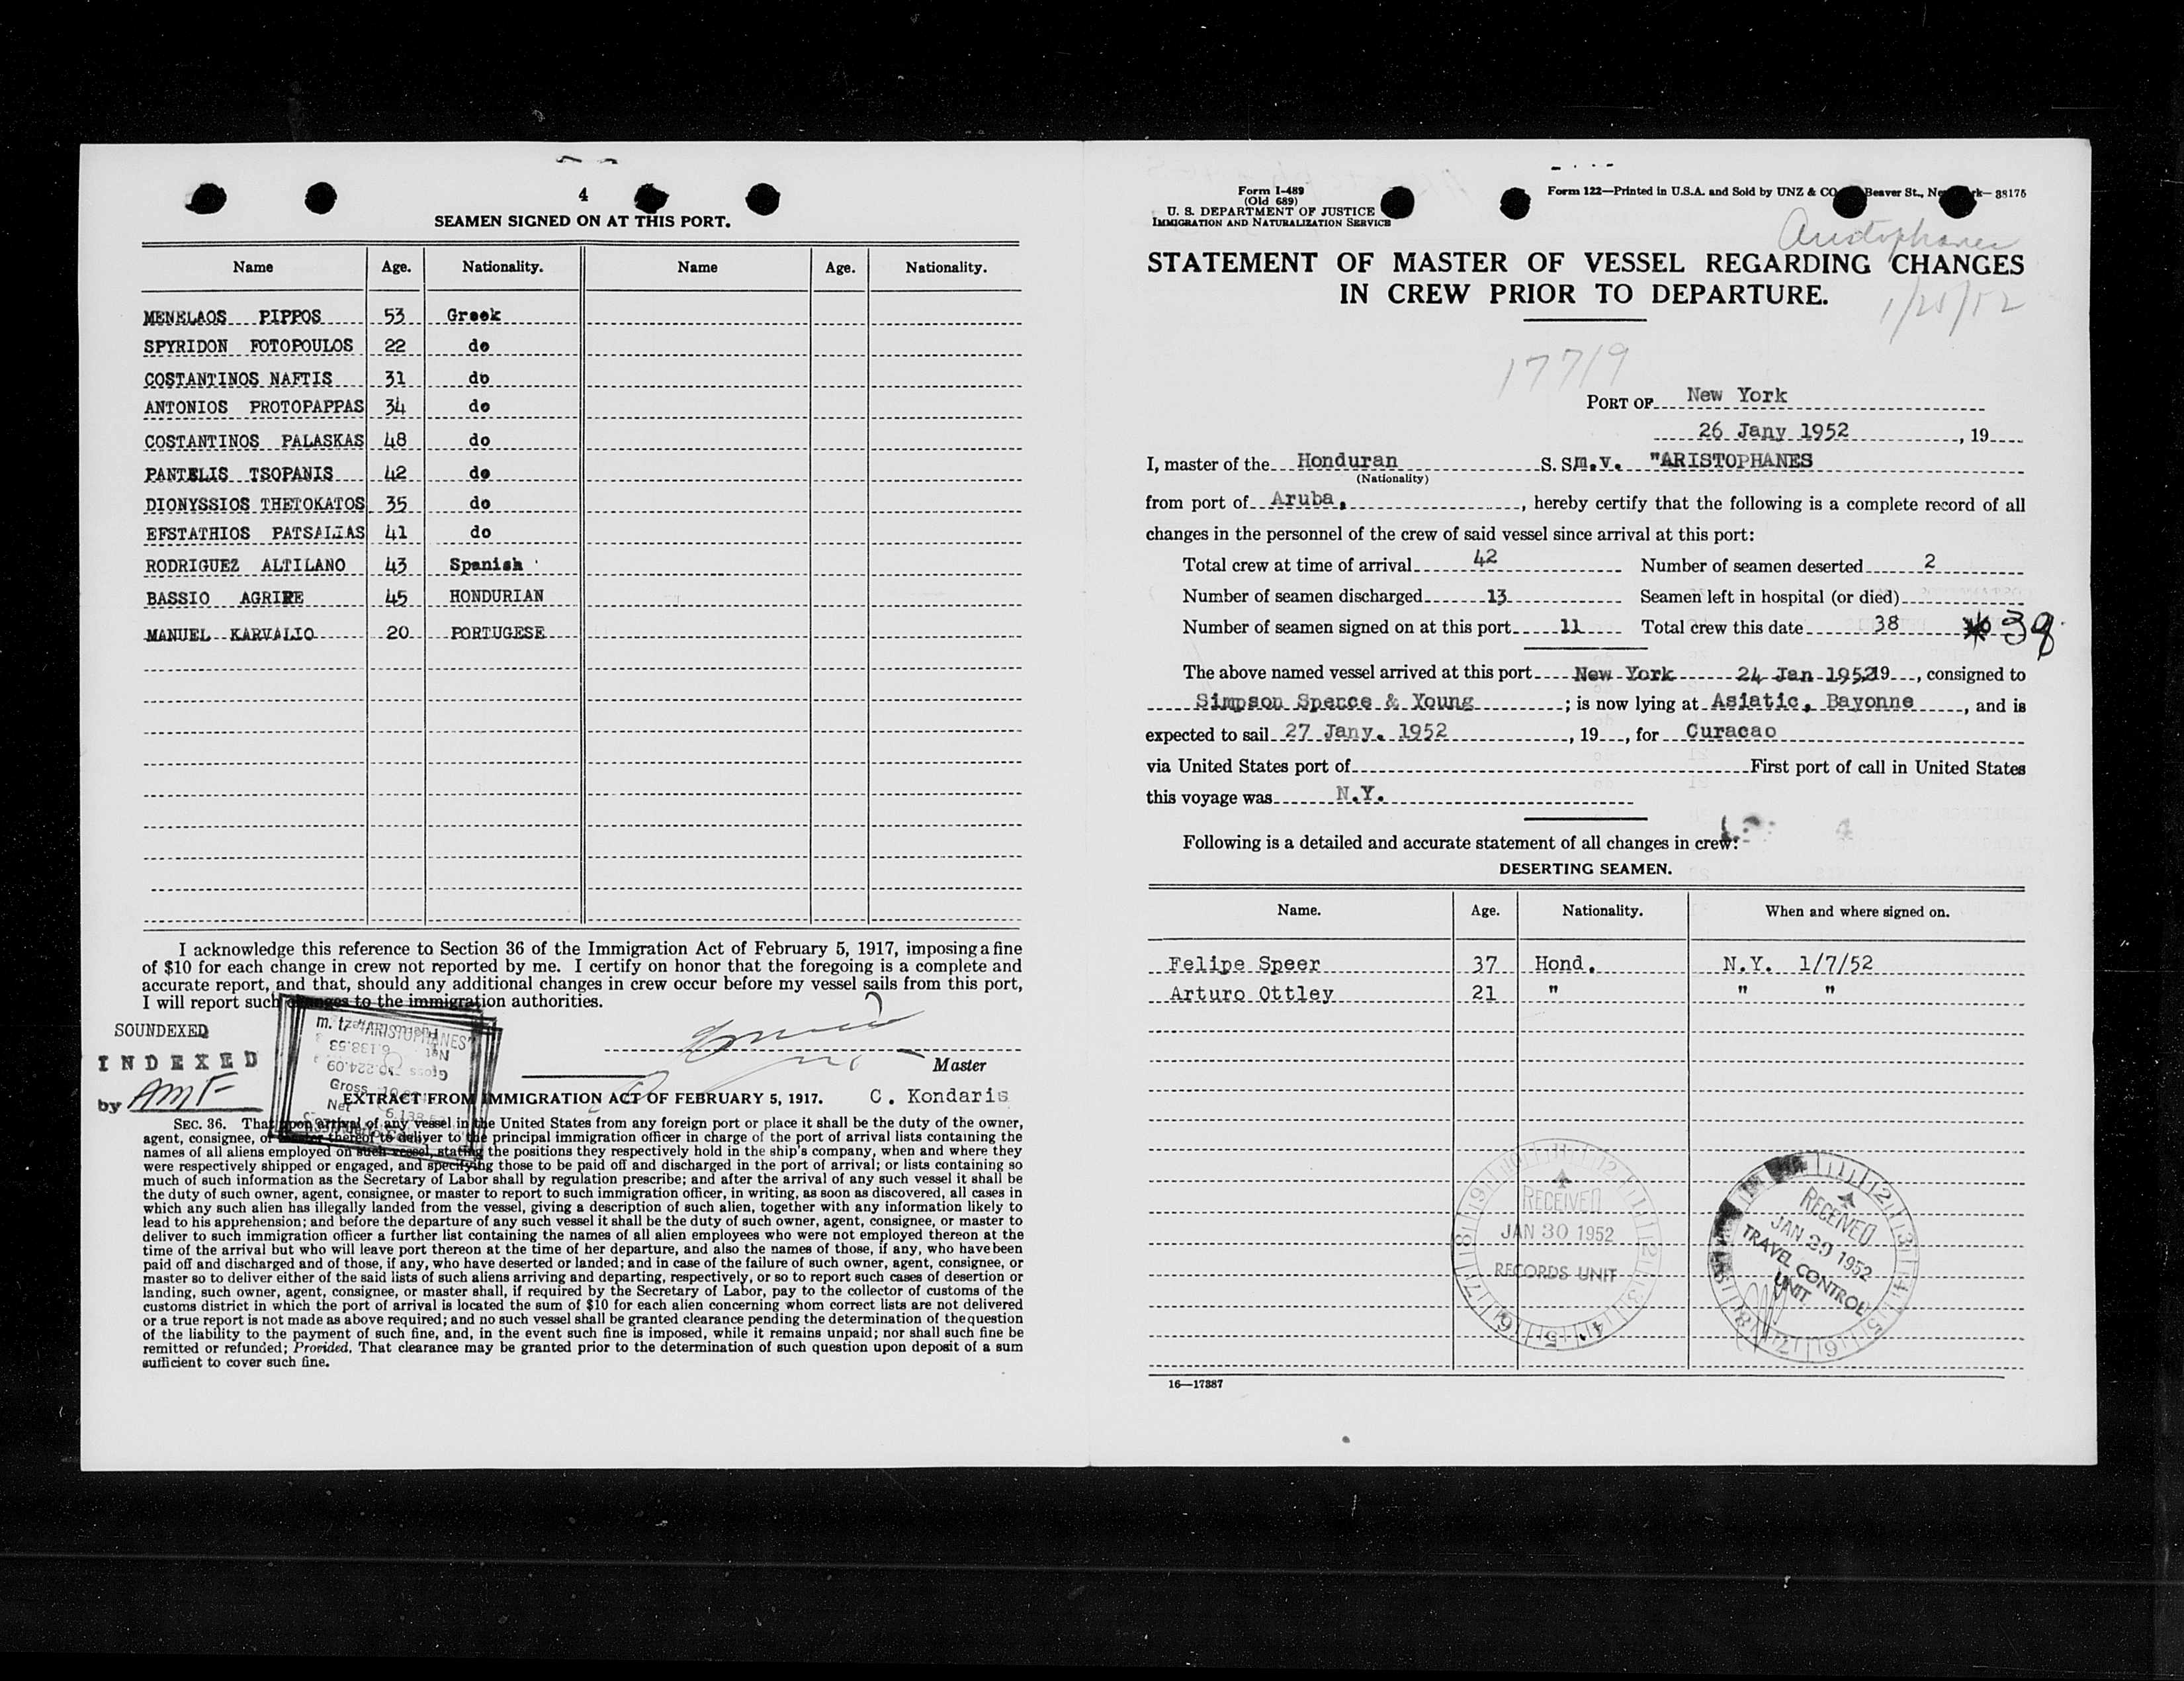 4
SEAMEN SIGNED ON AT THIS PORT.
Name Age. Nationality. Name Age. Nationality.
MENELAOS PIPPOS 53 Greek
SPYRIDON FOTOPOULOS 22 do
COSTANTINOS NAFTIS 31 do
ANTONIOS PROTOPAPPAS 34 do
COSTANTINOS PALASKAS 48 do
PANTELIS TSOPANIS 42 do
DIONYSSIOS THETOKATOS 35 do
EFSTATHIOS PATSALIAS 41 do
RODRIGUEZ ALTILANO 43 Spanish
BASSIO AGRIRE 45 HONDURIAN
MANUEL KARVALIO 20 PORTUGESE
I acknowledge this reference to Section 36 of the Immigration Act of February 5, 1917, imposing a fine
of $10 for each change in crew not reported by me. I certify on honor that the foregoing is a complete and
accurate report, and that, should any additional changes in crew occur before my vessel sails from this port,
I will report such changes to the immigration authorities.
SOUNDEXED
INDEXED
by AMF
m. tz. "ARISTOPHANES"
Gross
Net 6.138.53
Master
C. Kondaris
EXTRACT FROM IMMIGRATION ACT OF FEBRUARY 5, 1917.
SEC. 36. That upon arrival of any vessel in the United States from any foreign port or place it shall be the duty of the owner,
agent, consignee, or master thereof to deliver to the principal immigration officer in charge of the port of arrival lists containing the
names of all aliens employed on such vessel, stating the positions they respectively hold in the ship's company, when and where they
were respectively shipped or engaged, and specifying those to be paid off and discharged in the port of arrival; or lists containing so
much of such information as the Secretary of Labor shall by regulation prescribe; and after the arrival of any such vessel it shall be
the duty of such owner, agent, consignee, or master to report to such immigration officer, in writing, as soon as discovered, all cases in
which any such alien has illegally landed from the vessel, giving a description of such alien, together with any information likely to
lead to his apprehension; and before the departure of any such vessel it shall be the duty of such owner, agent, consignee, or master to
deliver to such immigration officer a further list containing the names of all alien employees who were not employed thereon at the
time of the arrival but who will leave port thereon at the time of her departure, and also the names of those, if any, who have been
paid off and discharged and of those, if any, who have deserted or landed; and in case of the failure of such owner, agent, consignee, or
master so to deliver either of the said lists of such aliens arriving and departing, respectively, or so to report such cases of desertion or
landing, such owner, agent, consignee, or master shall, if required by the Secretary of Labor, pay to the collector of customs of the
customs district in which the port of arrival is located the sum of $10 for each alien concerning whom correct lists are not delivered
or a true report is not made as above required; and no such vessel shall be granted clearance pending the determination of the question
of the liability to the payment of such fine, and, in the event such fine is imposed, while it remains unpaid; nor shall such fine be
remitted or refunded; Provided, That clearance may be granted prior to the determination of such question upon deposit of a sum
sufficient to cover such fine.
Form I-489
(Old 689)
U. S. DEPARTMENT OF JUSTICE
IMMIGRATION AND NATURALIZATION SERVICE
Form 122—Printed in U.S.A. and Sold by UNZ & CO Beaver St., New York—38175
Aristophanes
STATEMENT OF MASTER OF VESSEL REGARDING CHANGES
IN CREW PRIOR TO DEPARTURE.
17719
PORT OF New York
26 Jany 1952, 19
I, master of the Honduran S. S. M.V. "ARISTOPHANES
(Nationality)
from port of Aruba, , hereby certify that the following is a complete record of all
changes in the personnel of the crew of said vessel since arrival at this port:
Total crew at time of arrival 42 Number of seamen deserted 2
Number of seamen discharged 13 Seamen left in hospital (or died)
Number of seamen signed on at this port 11 Total crew this date 38 38
The above named vessel arrived at this port New York 24 Jan 1952 19 , consigned to
Simpson Spence & Young ; is now lying at Asiatic, Bayonne , and is
expected to sail 27 Jany. 1952 , 19 , for Curacao
via United States port of First port of call in United States
this voyage was N.Y.
Following is a detailed and accurate statement of all changes in crew:
DESERTING SEAMEN.
Name. Age. Nationality. When and where signed on.
Felipe Speer 37 Hond. N.Y. 1/7/52
Arturo Ottley 21 " " "
RECEIVED
JAN 30 1952
RECORDS UNIT
RECEIVED
JAN 29 1952
TRAVEL CONTROL
UNIT
16—17387